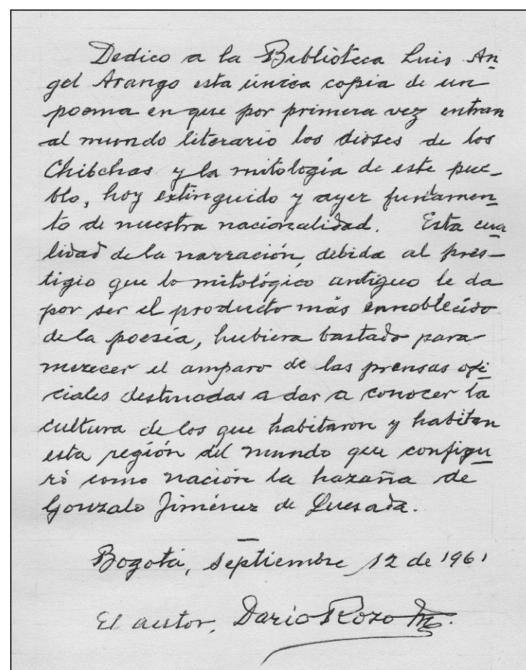 Dedico a la Biblioteca Luis An
gel Arango esta única copia de un
poema en que por primera vez entran
al mundo literario los dioses de los
Chibchas y la mitología de este pue-
blo, hoy extinguido y ayer fundamen-
to de nuestra nacionalidad. Esta cua
lidad de la narración, debida al pres-
tigio que lo mitológico antiguo le da
por ser el producto más ennoblecido
de la poesía, hubiera bastado para
merecer el amparo de las prensas ofi-
ciales destinadas a dar a conocer la
cultura de los que habitaron y habitan
esta región del mundo que configu-
ró como nación la hazaña de
Gonzalo Jiménez de Quesada.
Bogotá, septiembre 12 de 1961
El autor, Darío Rozo M.